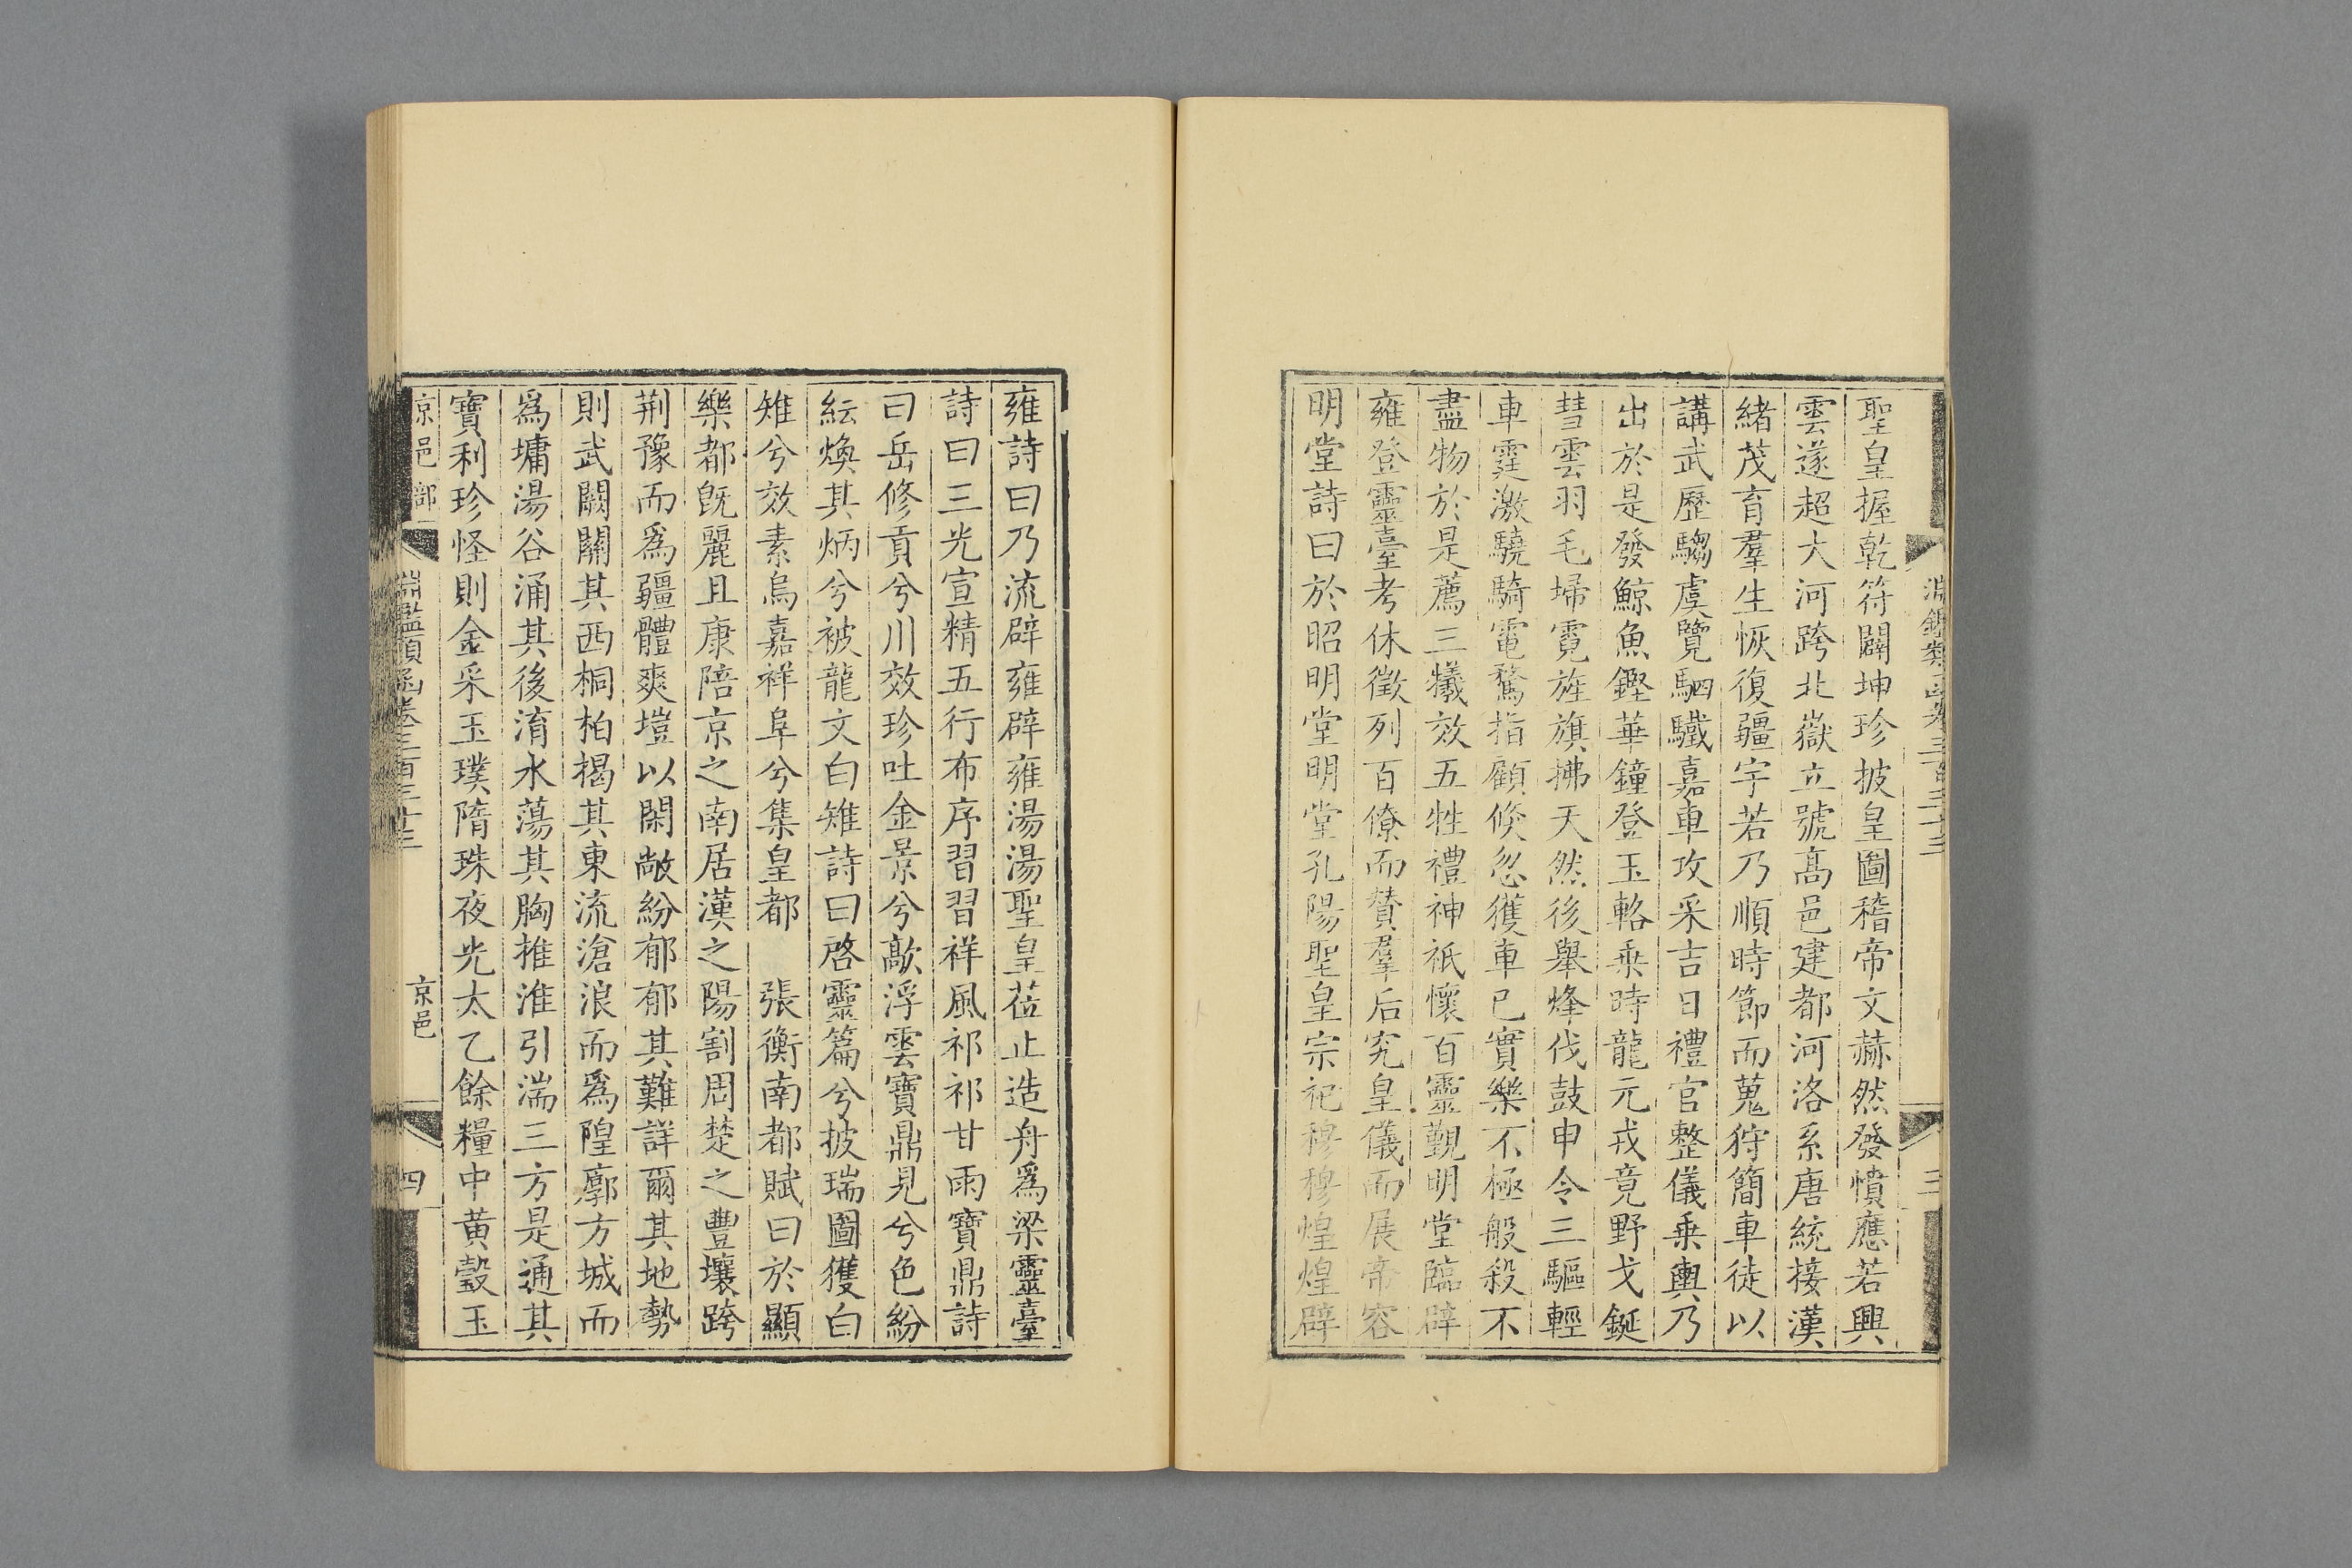 聖皇握乾符闢坤珍披皇圖稽帝文赫然發憤應若興
雲遂超大河跨北嶽立號高邑建都河洛系唐統接漢
緒茂育羣生恢復疆宇若乃順時節而蒐狩簡車徒以
講武歷騶虞覽駟驖嘉車攻采吉日禮官整儀乗輿乃
出於是發鯨魚鏗華鐘登玉輅乗時龍元戎竟野戈鋋
彗雲羽毛埽霓旌旗拂天然後舉烽伐鼓申令三驅輕
車霆激驍騎電騖指顧倐忽獲車已實樂不極般殺不
盡物於是薦三犧效五牲禮神祇懷百靈覲明堂臨辟
雍登靈臺考休徵列百僚而贊羣后究皇儀而展帝容
明堂詩曰於昭明堂明堂孔陽聖皇宗祀穆穆煌煌辟
三
雍詩曰乃流辟雍辟雍湯湯聖皇莅止造舟爲梁靈臺
詩曰三光宣精五行布序習習祥風祁祁甘雨寶鼎詩
曰岳修貢兮川效珍吐金景兮歊浮雲寶鼎見兮色紛
紜煥其炳兮被龍文白雉詩曰啓靈篇兮披瑞圖獲白
雉兮效素烏嘉祥阜兮集皇都　張衡南都賦曰於顯
樂都旣麗且康陪京之南居漢之陽割周楚之豐壤跨
荆豫而爲疆體爽塏以閑敞紛郁郁其難詳爾其地勢
則武闕關其西桐柏揭其東流滄浪而爲隍廓方城而
爲墉湯谷涌其後淯水蕩其胸推淮引湍三方是通其
寶利珍怪則金采玉璞隋珠夜光太乙餘糧中黄瑴玉
京邑部　淵鑑類函卷三百三十三　京邑　四